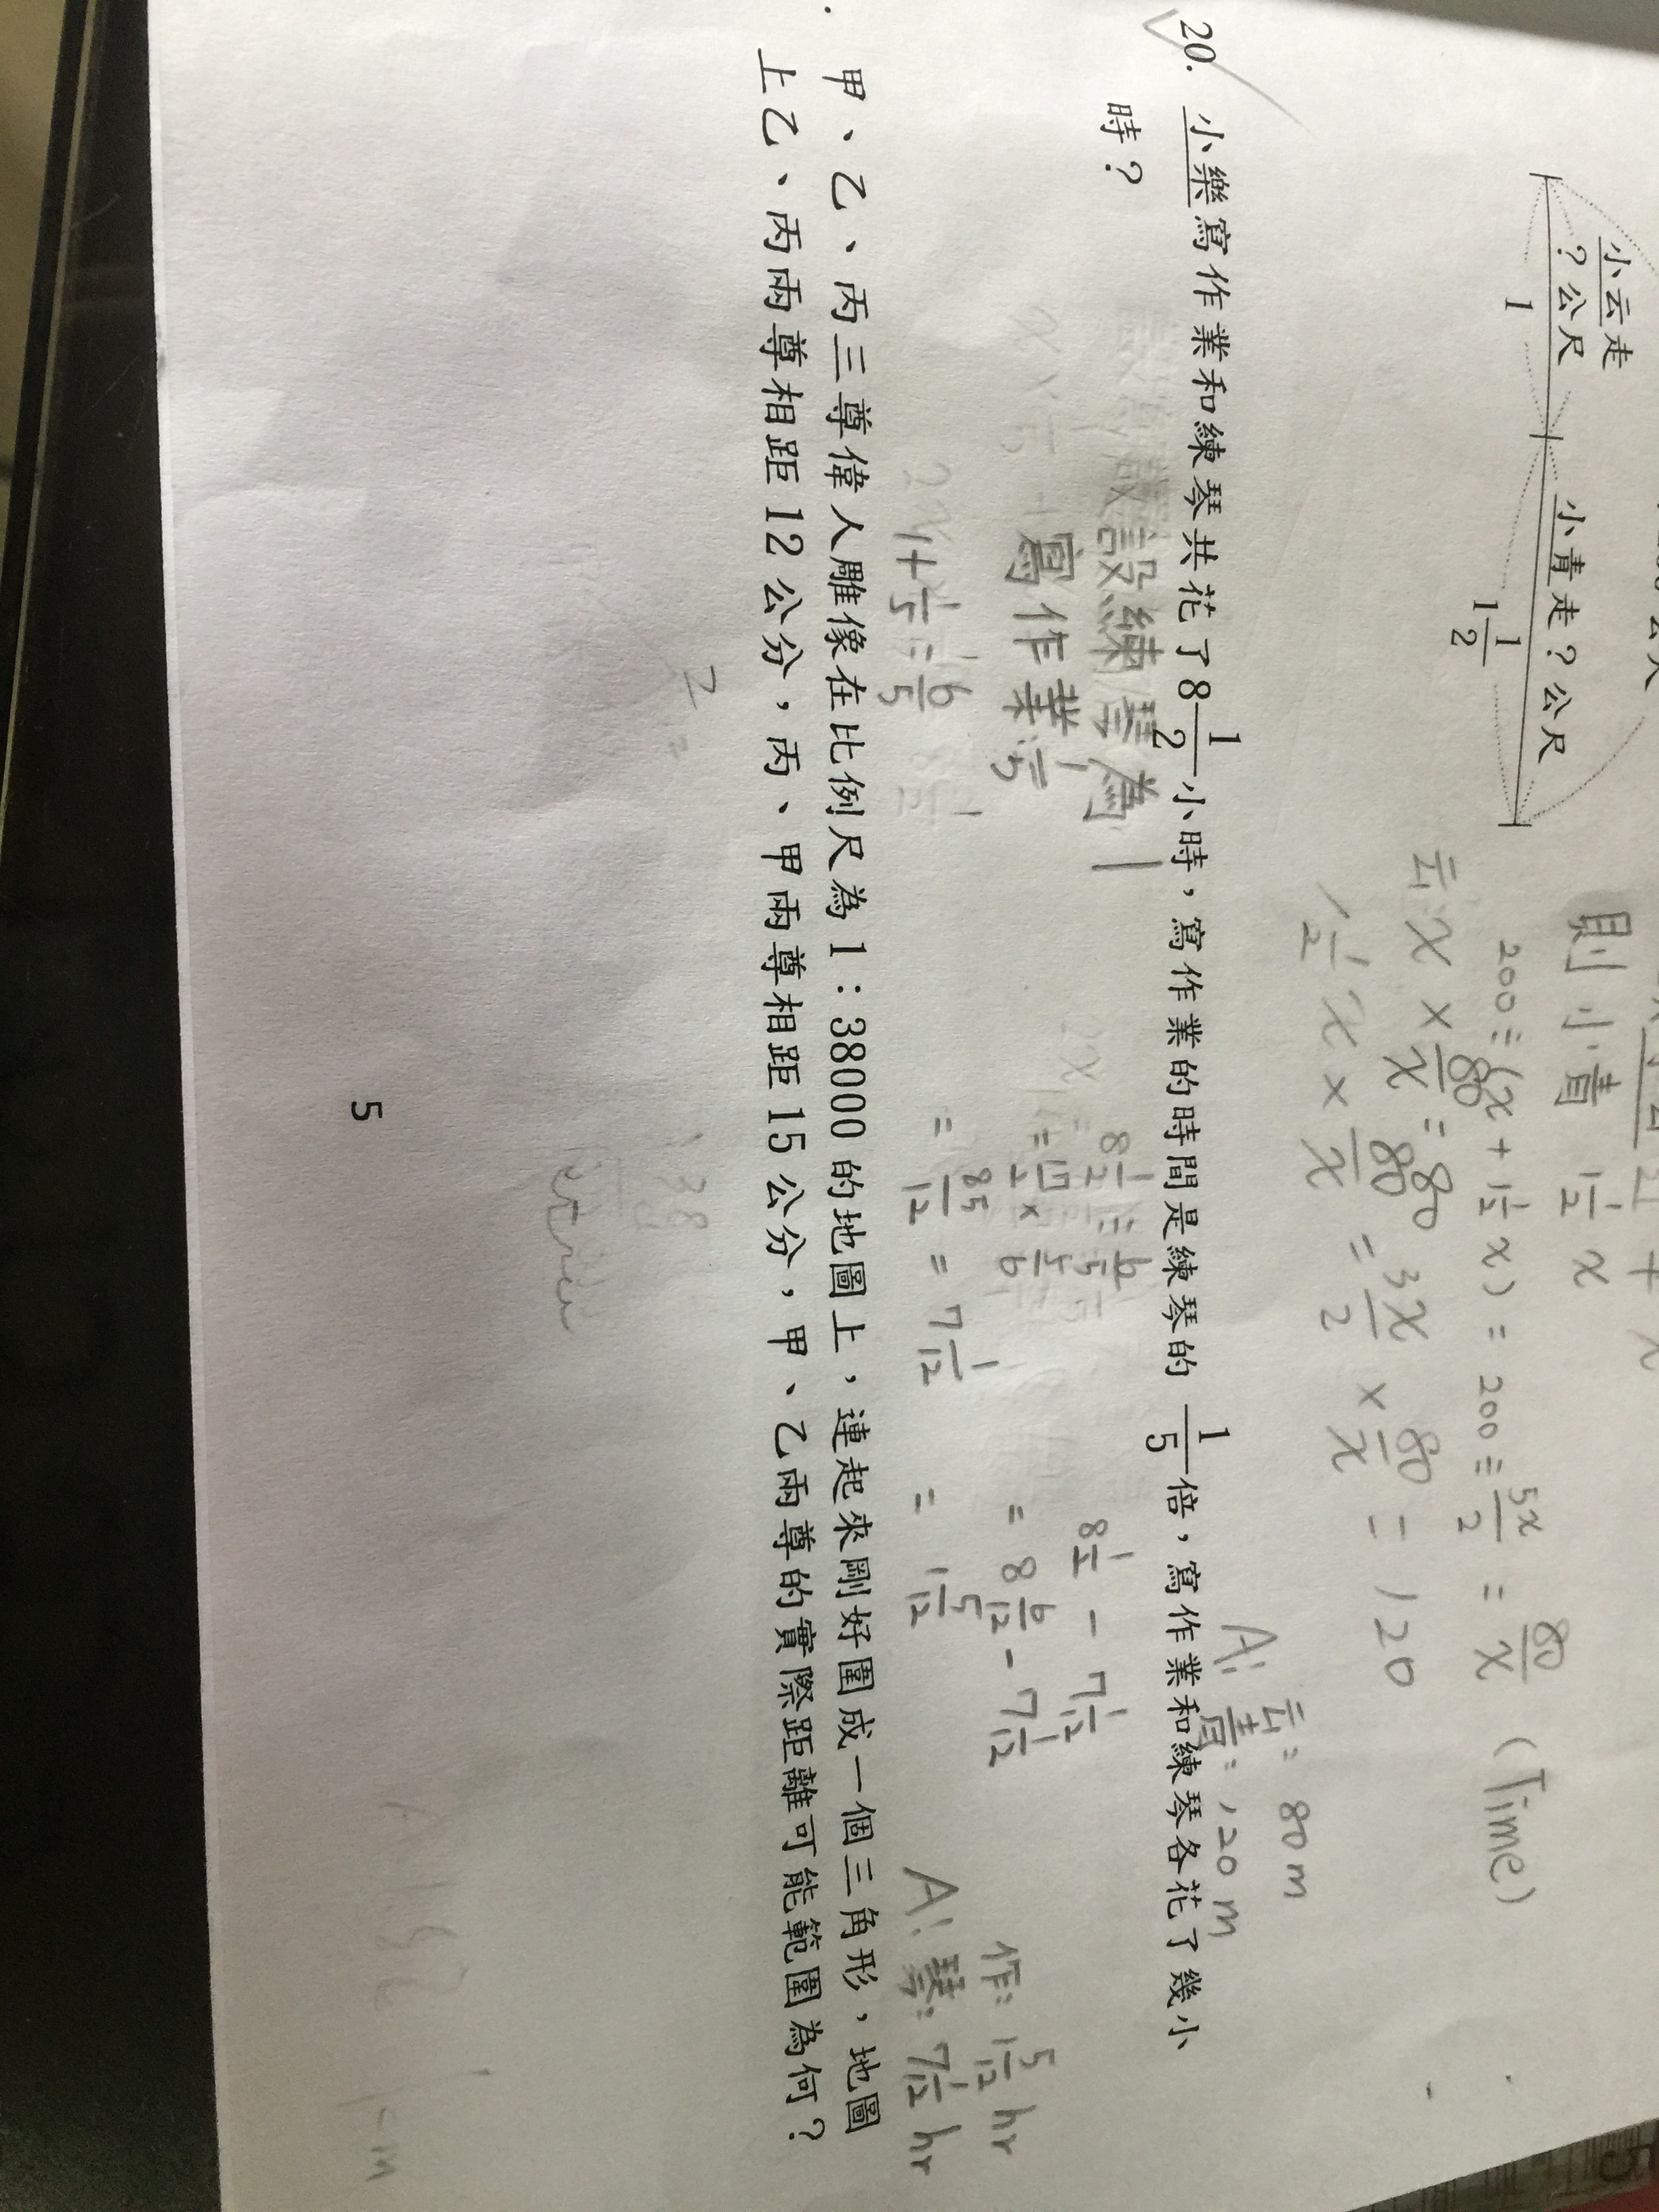 小云走
？公尺
1
小青走？公尺
1 1/2
則小青 1 1/2 x
200÷(x+1 1/2 x)=200÷5x/2=80/x (Time)
云:x×80/x=80
1 1/2 x×80/x=3x/2×80/x=120
A: 云:80m
青:120m
20. 小樂寫作業和練琴共花了8 1/2小時，寫作業的時間是練琴的 1/5倍，寫作業和練琴各花了幾小
時？
設練琴為1
寫作業 1/5
1+1/5=6/5
8 1/2÷6/5
=17/2×5/6
=85/12=7 1/12
8 1/2-7 1/12
=8 6/12-7 1/12
=1 5/12
作:1 5/12 hr
A: 琴:7 1/12 hr
甲、乙、丙三尊偉人雕像在比例尺為1：38000的地圖上，連起來剛好圍成一個三角形，地圖
上乙、丙兩尊相距12公分，丙、甲兩尊相距15公分，甲、乙兩尊的實際距離可能範圍為何？
5